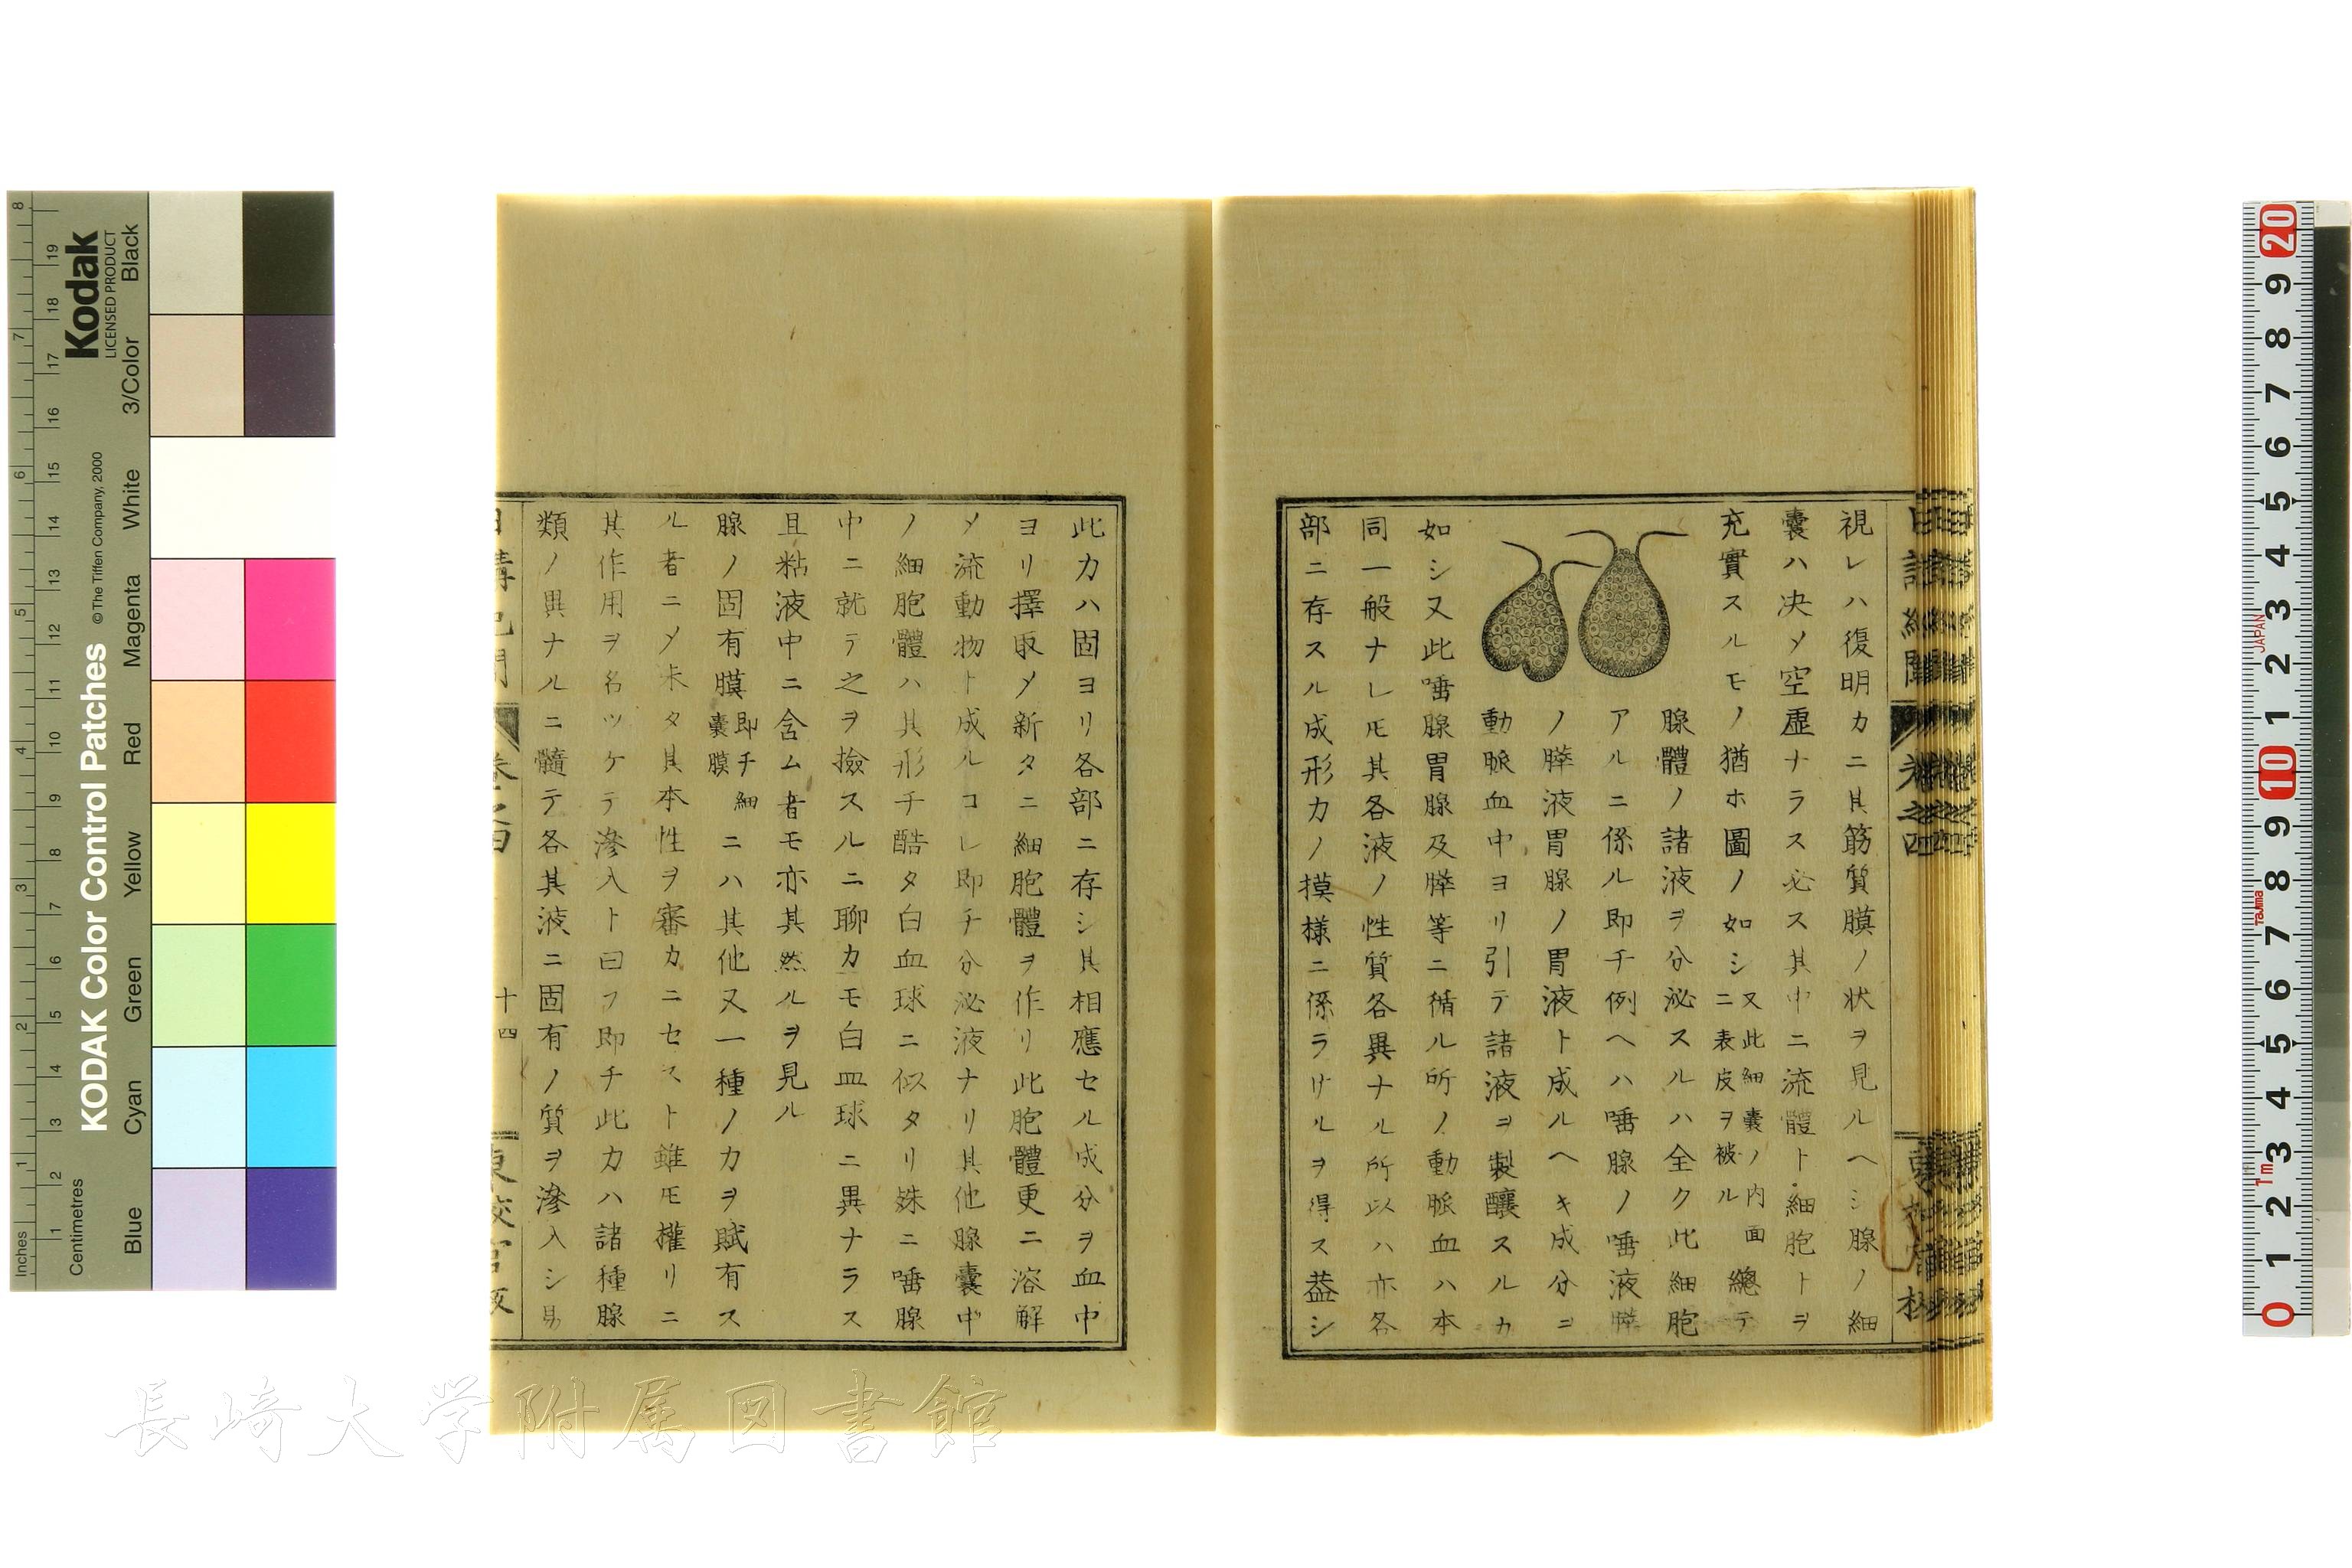 視レハ復明カニ其筋質膜ノ狀ヲ見ルヘシ腺ノ細
囊ハ決メ空虛ナラス必ス其中ニ流體ト細胞トヲ
充實スルモノ猶ホ圖ノ如シ又此細囊ノ內面ニ表皮ヲ被ル總テ
腺體ノ諸液ヲ分泌スルハ全ク此細胞
アルニ係ル即チ例ヘハ唾腺ノ唾液膵
ノ膵液胃腺ノ胃液ト成ルヘキ成分ヲ
動脈血中ヨリ引テ諸液ヲ製釀スルカ
如シ又此唾腺胃腺及膵等ニ循ル所ノ動脈血ハ本
同一般ナレ𪜈其各液ノ性質各異ナル所以ハ亦各
部ニ存スル成形力ノ摸樣ニ係ラサルヲ得ス蓋シ
此力ハ固ヨリ各部ニ存シ其相應セル成分ヲ血中
ヨリ擇取メ新タニ細胞體ヲ作リ此胞體更ニ溶解
メ流動物ト成ルコレ即チ分泌液ナリ其他腺囊中
ノ細胞體ハ其形チ酷タ白血球ニ似タリ殊ニ唾腺
中ニ就テ之ヲ撿スルニ聊カモ白血球ニ異ナラス
且粘液中ニ含ム者モ亦其然ルヲ見ル
腺ノ固有膜即チ細囊膜ニハ其他又一種ノ力ヲ賦有ス
ル者ニメ未タ其本性ヲ審カニセスト雖𪜈權リニ
其作用ヲ名ツケテ滲入ト曰フ即チ此力ハ諸種腺
類ノ異ナルニ髓テ各其液ニ固有ノ質ヲ滲入シ易
卷之四
十四
KODAK Color Control Patches
© The Tiffen Company, 2000
Kodak
LICENSED PRODUCT
Inches
Centimetres
Blue
Cyan
Green
Yellow
Red
Magenta
White
3/Color
Black
JAPAN
Tajima
1m
長崎大学附属図書館